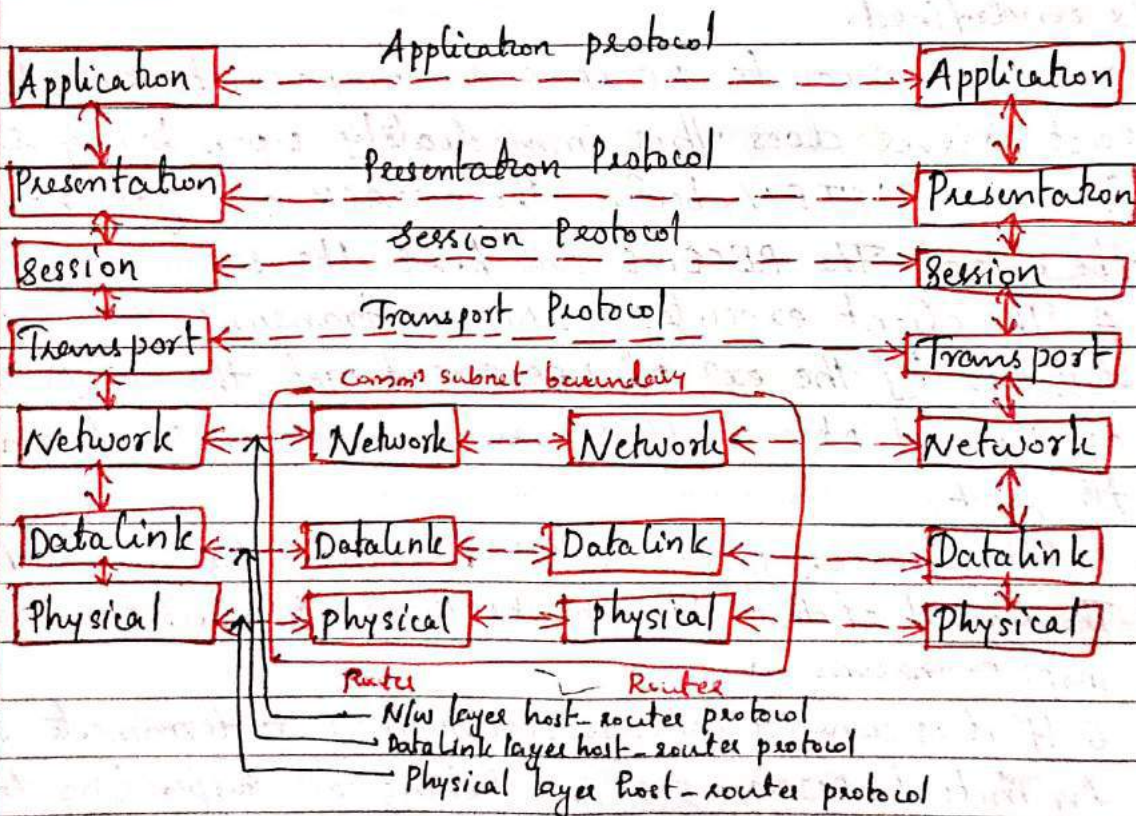 Application protocol
Application Application
Presentation Protocol
Presentation Presentation
Session Protocol
Session Session
Transport Protocol
Transport Transport
Commⁿ subnet boundary
Network Network Network Network
Datalink Datalink Datalink Datalink
Physical physical physical Physical
Router Router
N/w layer host-router protocol
DataLink layer host-router protocol
Physical layer host-router protocol